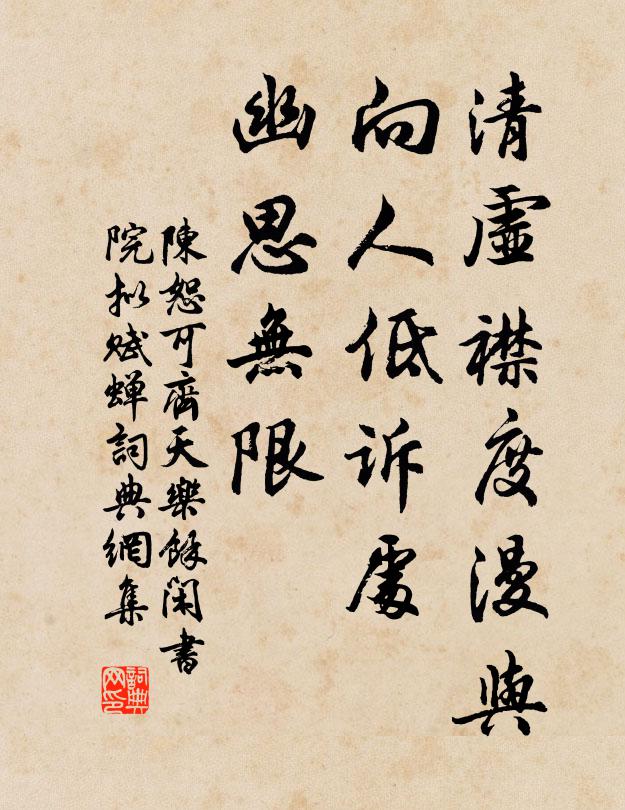 清虛襟度漫與
向人低訴處
幽思無限
陳恕可齊天樂餘閑書
院拟赋蝉詞典網集
詞典
网印